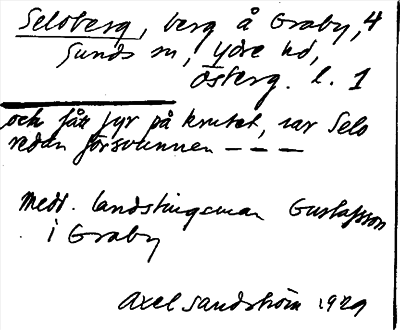 Seloberg, berg å Graby, 4
Sunds sn, Ydre hd,
Österg. l. 1
och fått fyr på krutet, var Selo
redan försvunnen — — —
Medd. landstingsman Gustafsson
i Graby
Axel Sandström 1929